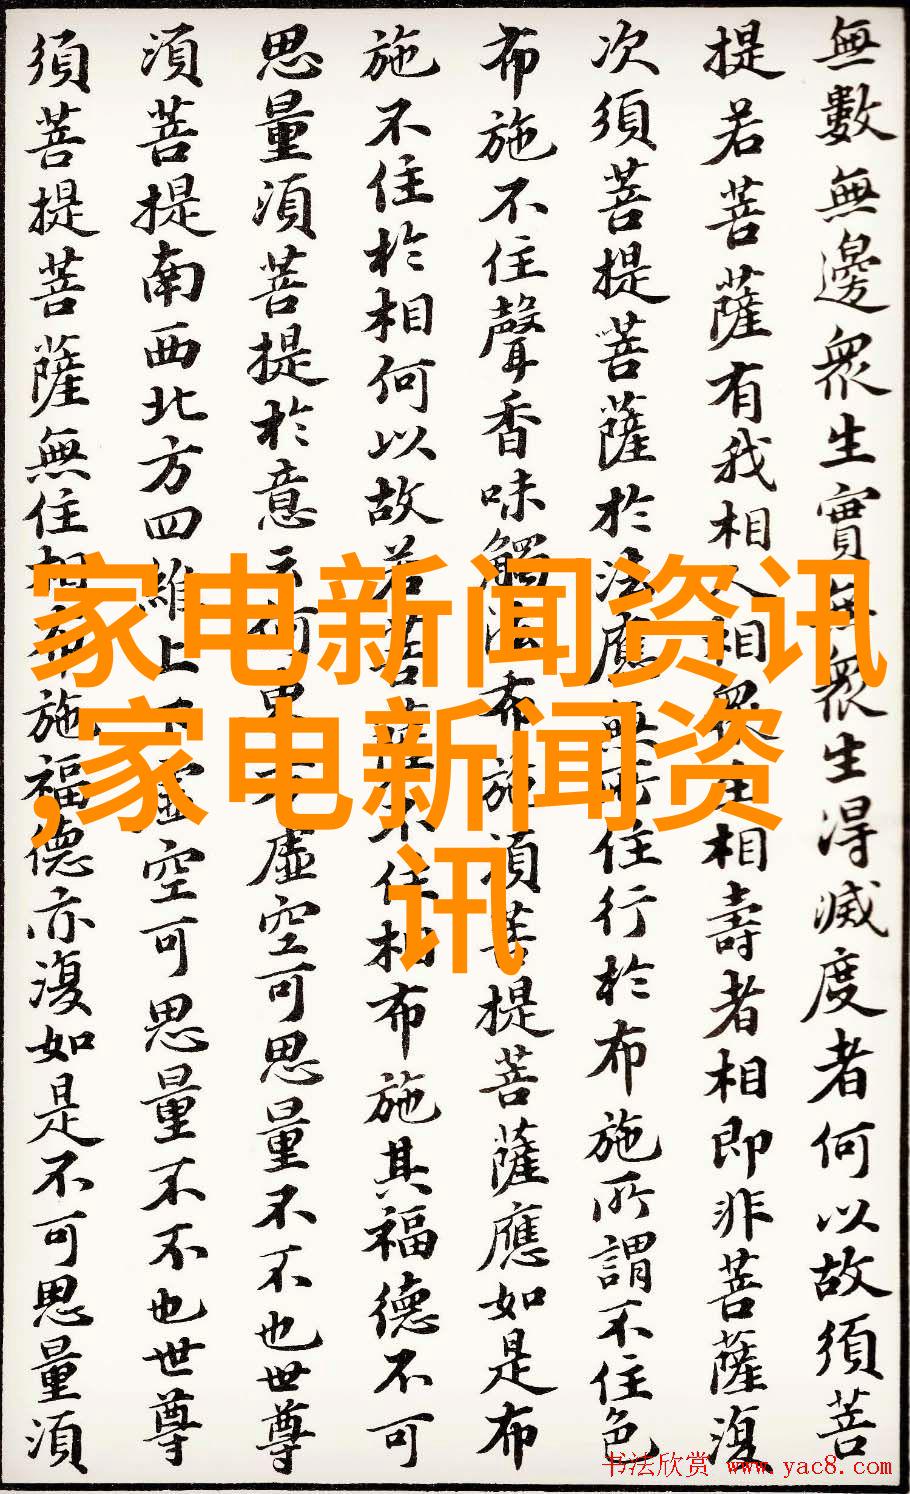 無數無邊衆生實無衆生得滅度者何以故須菩
提若菩薩有我相人相衆生相壽者相即非菩薩復
次須菩提菩薩於法應無所住行於布施所謂不住色
布施不住聲香味觸法布施須菩提菩薩應如是布
施不住於相何以故若菩薩不住相布施其福德不可
思量須菩提於意云何東方虛空可思量不不也世尊
須菩提南西北方四維上下虛空可思量不不也世尊
須菩提菩薩無住相布施福德亦復如是不可思量須
家电新闻资讯
,家电新闻资
讯
书法欣赏 www.yac8.com